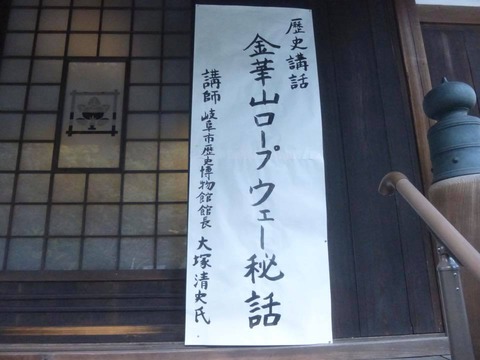 歴史講話
金華山ロープウェー秘話
講師 岐阜市歴史博物館館長 大塚清史氏